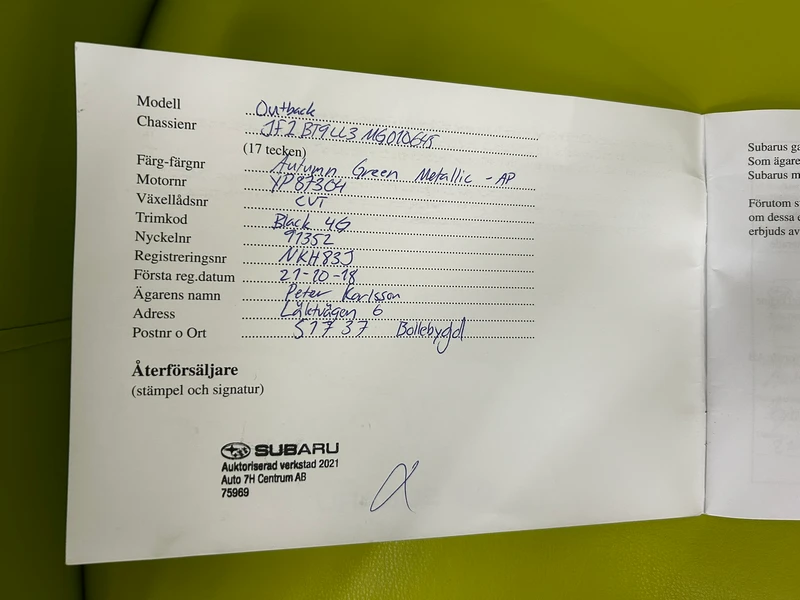 Modell Outback
Chassienr JF2BT9LL3MG010645
(17 tecken)
Färg-färgnr Autumn Green Metallic - AP
Motornr YP87304
Växellådsnr CVT
Trimkod Black 4G
Nyckelnr 91352
Registreringsnr NKH83J
Första reg.datum 21-10-18
Ägarens namn Peter Karlsson
Adress
6
Postnr o Ort 51737 Bollebygd
Återförsäljare
(stämpel och signatur)
SUBARU
Auktoriserad verkstad 2021
Auto 7H Centrum AB
75969
Subarus ga
Som ägare
Subarus m
Förutom s
om dessa
erbjuds av